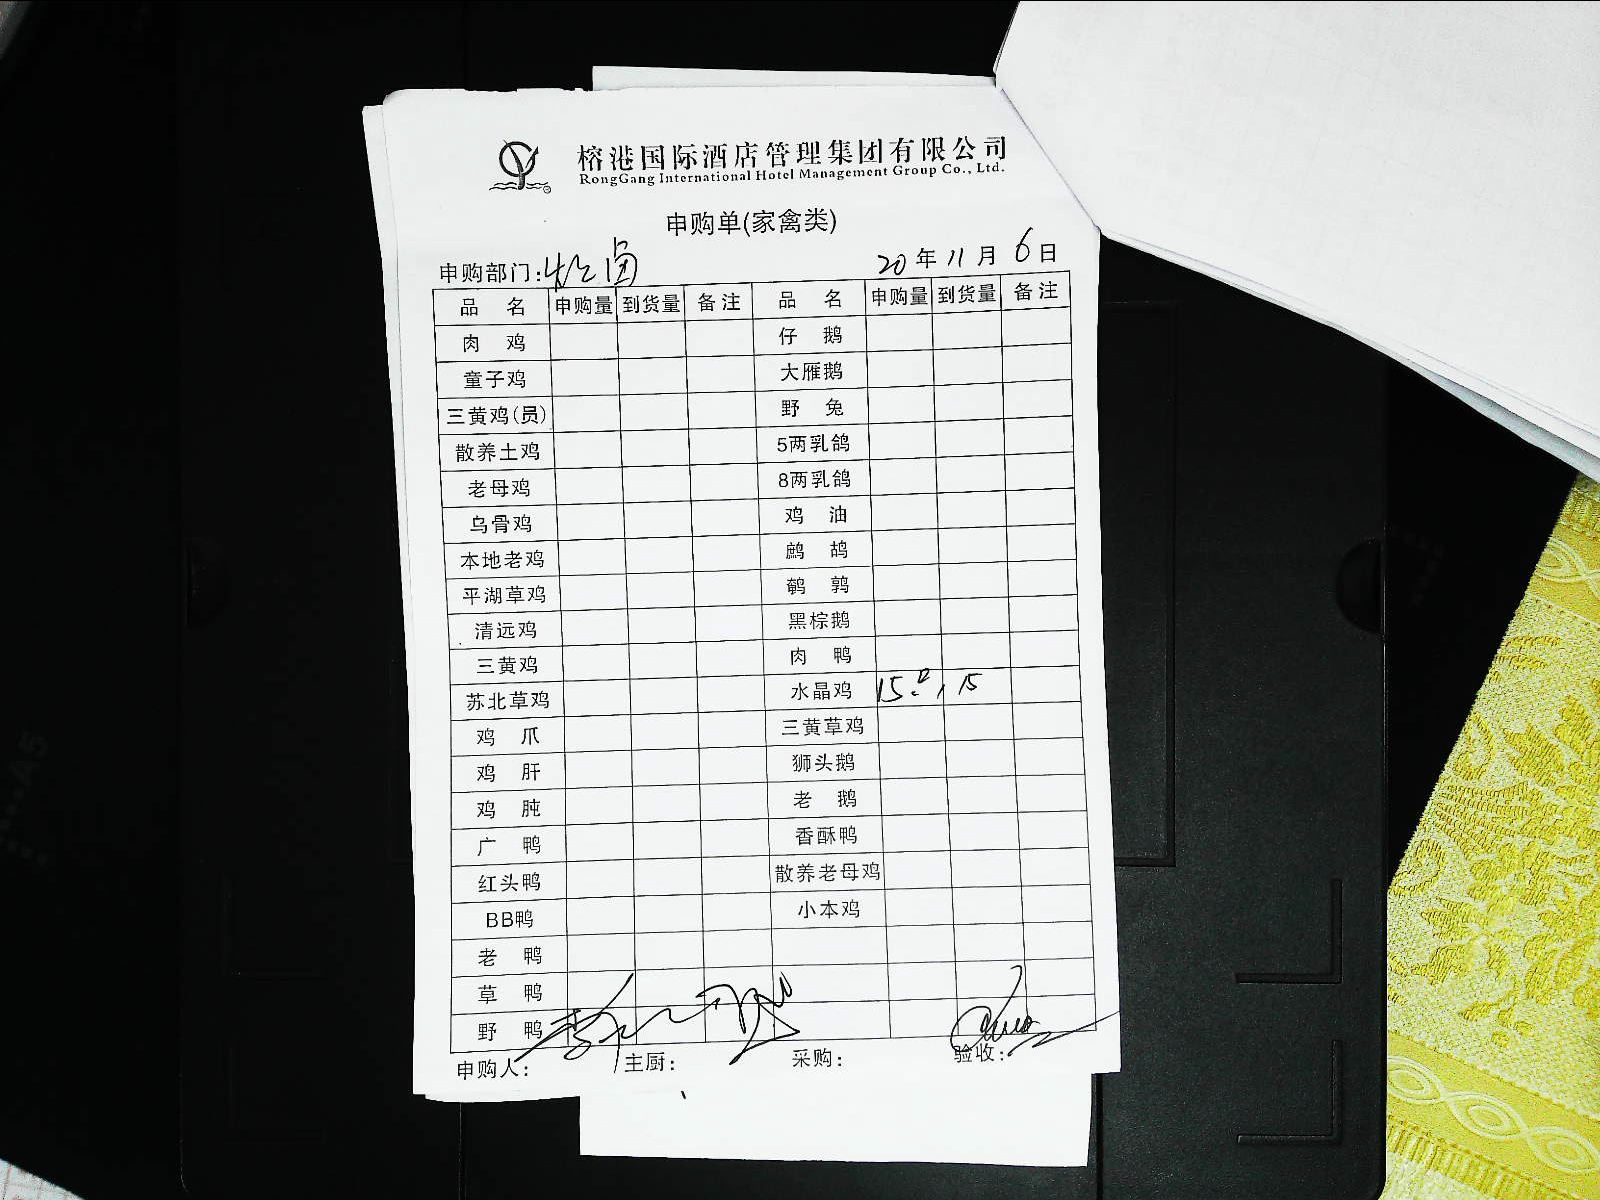 榕港国际酒店管理集团有限公司
RongGang International Hotel Management Group Co., Ltd.
申购单(家禽类)
申购部门: 20年11月6日
品名 申购量 到货量 备注 品名 申购量 到货量 备注
肉鸡 仔鹅
童子鸡 大雁鹅
三黄鸡(员) 野兔
散养土鸡 5两乳鸽
老母鸡 8两乳鸽
乌骨鸡 鸡油
本地老鸡 鹧鸪
平湖草鸡 鹌鹑
清远鸡 黑棕鹅
三黄鸡 肉鸭
苏北草鸡 水晶鸡 15 15
鸡爪 三黄草鸡
鸡肝 狮头鹅
鸡肫 老鹅
广鸭 香酥鸭
红头鸭 散养老母鸡
BB鸭 小本鸡
老鸭
草鸭
野鸭
申购人: 主厨: 采购: 验收: